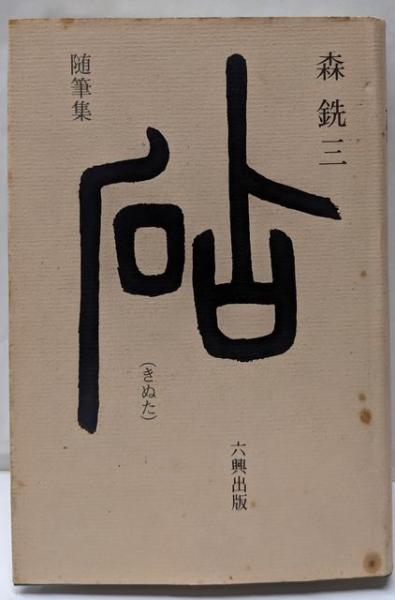 森 銑三
砧
随筆集
(きぬた)
六興出版